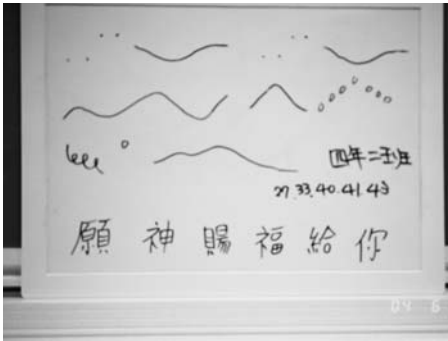 四年二班
27.33.40.41.43
願神賜福給你
04 6